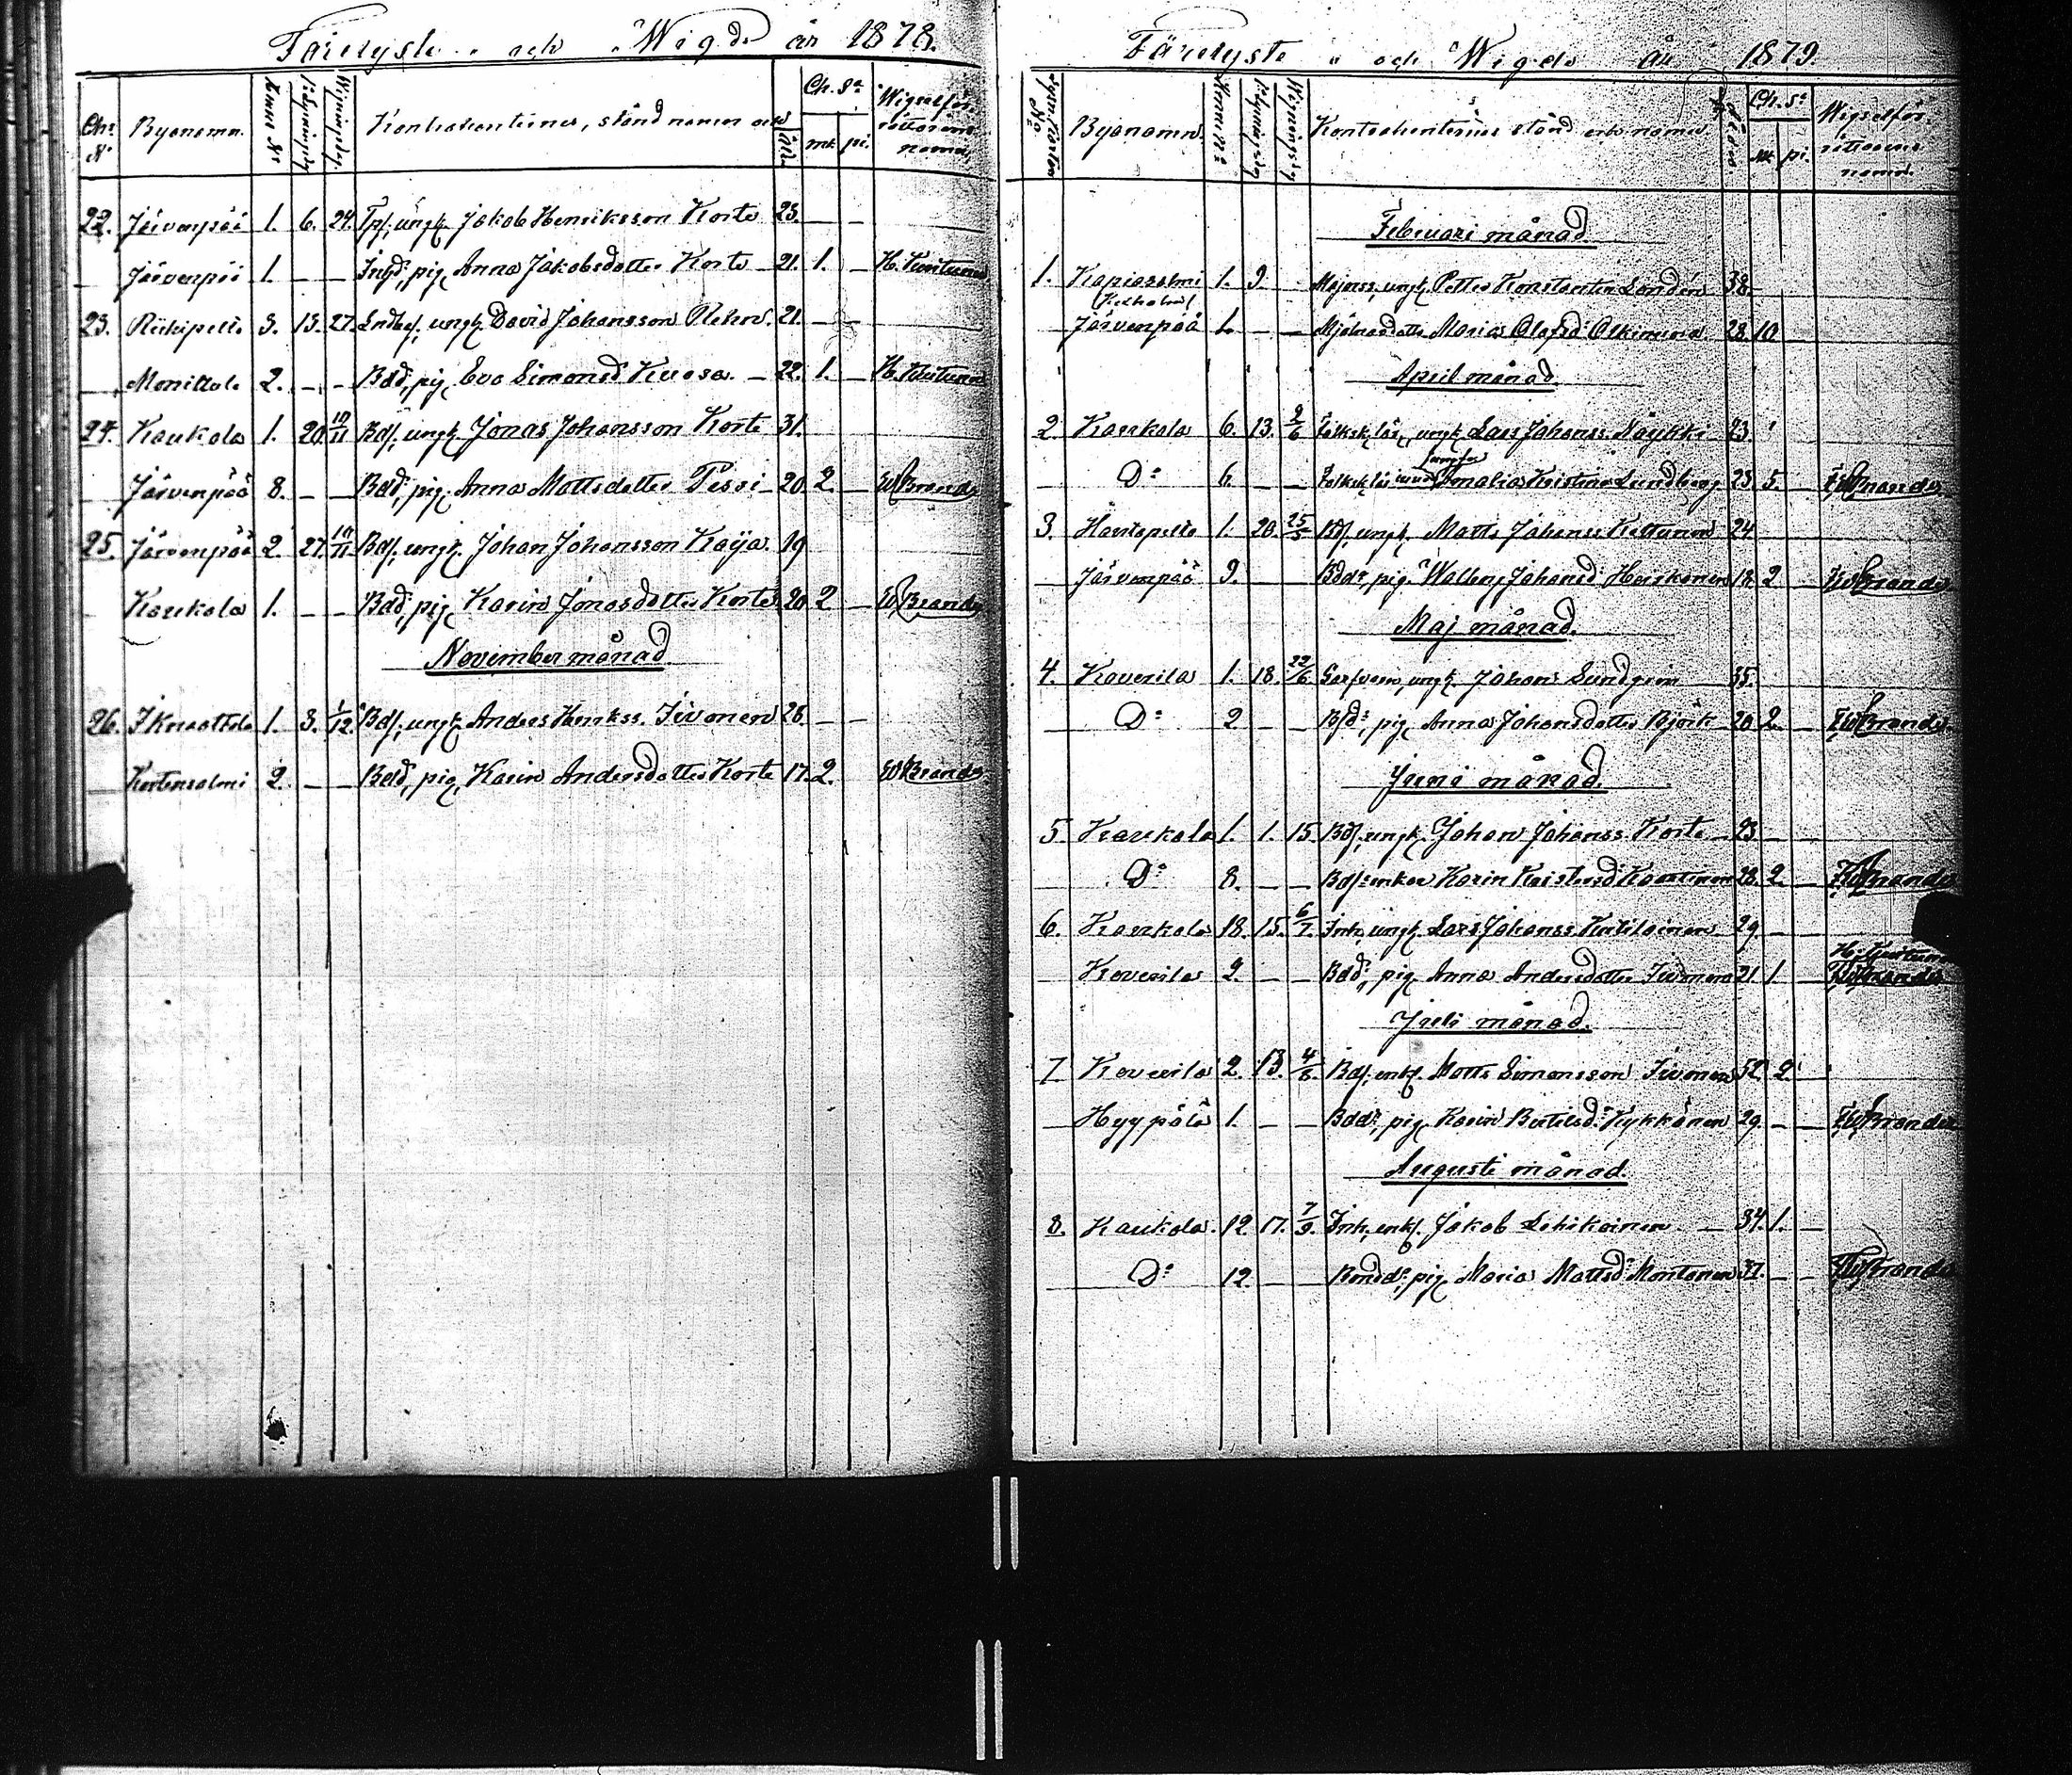 Färelyste och Wigde år 1878.
Chr. No Byanamn. Hemm. No Lysningsdag Wigningsdag. Kontrahenternes, stånd namn och Ålder Ch. Sa. mk. pi. Wigselförrättarens namn.
22. Järvenpää 1. 6. 24. Tpf, ungk. Jakob Henriksson Korte 23. — —
Järvenpää 1. — — Inhd, pig. Anna Jakobsdotter Korte 21. 1. — H. Kiutunen
23. Riihipelto 3. 13. 27. Lndbef, ungk. David Johansson 21. — —
Monittula 2. — — Bdd, pig. Eva Simonsd. Kuosa. — 22. 1. —
24. Kaukola 1. 20. 10/11 Bdf, ungk. Jonas Johansson Korte 31.
Järvenpää 8. — — Bdd, pig. Anna Mattsdotter Pessi — 20. 2. — EWBrander
25. Järvenpää 2. 27. 10/11 Bdf, ungk. Johan Johansson Kaija. 19
Kaukola 1. — — Bdd, pig. Karin Jonasdotter Korte 20 2 — EWBrander
November månad
26. 1. 3. 1/12. Bdf, ungk. Anders Henrikss. Iivonen 28. — —
Kortensalmi 2. — — Bdd, pig. Karin Andersdotter Korte 17. 2. EWBrander
Färelyste och Wigde År 1879
No Byanamn. Hemm. No Lysningsdag Wigningsdag Kontrahenternes stånd och namn. Ålder Ch. Sa. mk pi. Wigselförrättarens namn.
Februari månad
1. Kapiasalmi 1. 9. ungk. Petter Konstantin Londén 38. —
(Kexholm)
Järvenpää 1. — — Mjölnaredotter Maria Olofsd. 28. 10
April månad
2. Kaukola 6. 13. 2/6 Folksk. lär., ungk. Lars Johanss. Näykki 23.
Do 6. — — Folksk. lär. jungfru Amalia Kristina Lundberg 23. 5. — EWBrander
3. Hartapelto 1. 20. 25/5 Bdf, ungk. Matts Johanss. Kottunen 24
Järvenpää 9. — Bddr, pig. Walborg Johansd. Heiskanen 18. 2 — EWBrander
Maj månad.
4. Koverila 1. 18. 22/6 ungk. Johan Sundgren 35.
Do 2 — — pig. Anna Johansdotter Björk 20 2 — EWBrander
Juni månad.
5. Kaukola 1. 1. 15. Bdf, ungk. Johan Johanss. Korte — 23 —
Do 8. — — enka Karin Kristersd. 28. 2. — EWBrander
6. Kaukola 18. 15. 6/7. Inh, ungk. Lars Johanss. Kutilainen 29. —
Koverila 2. — — Bdd, pig. Anna Andersdotter Iivonen 21. 1. — H. Kiutunen
Juli månad.
7 Koverila 2. 13. 4/8. Bdf, enkl. Matts Simonsson Iivonen 52 2.
Hyypölä 1. — — Bddr, pig. Karin Bertilsd. Kykkänen 29. — — EWBrander
Augusti månad.
8. Kaukola. 12. 17. 7/9. Inh, enkl. Jakob Lehikoinen — 34. 1. —
Do 12. — — pig. Maria Mattsd. Montonen 37. — — EWBrander